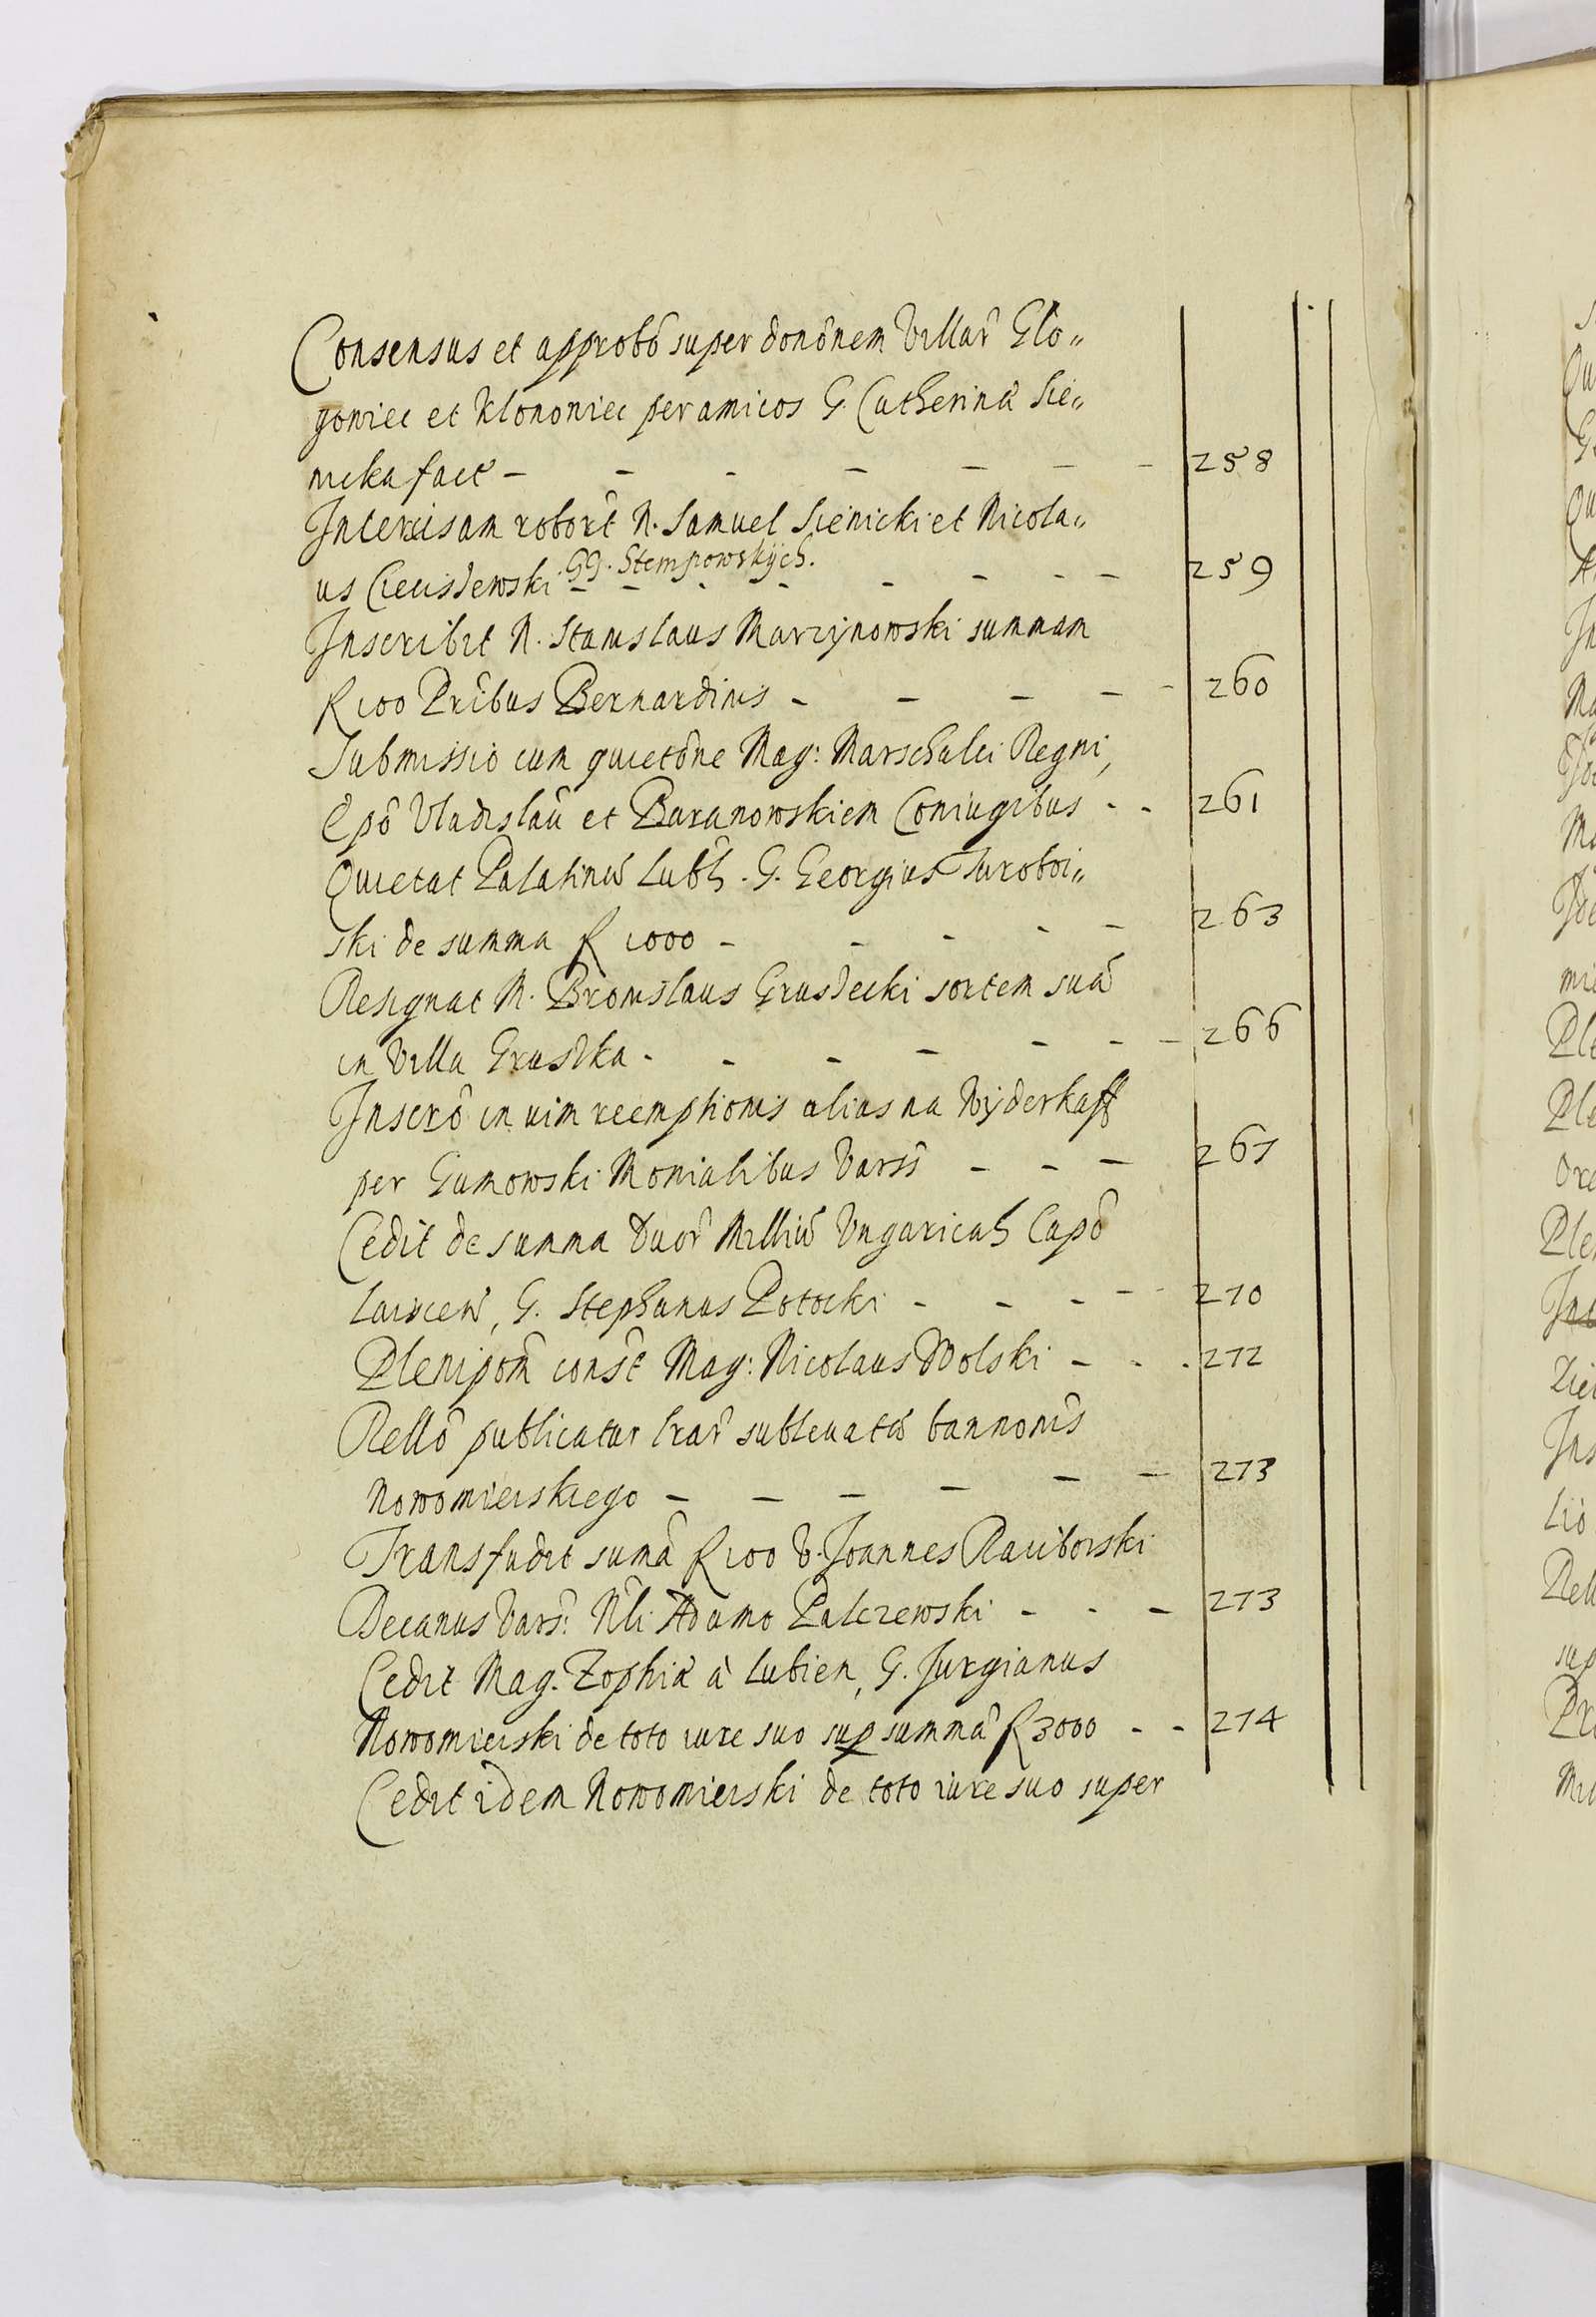 Consensus et approbõ super donõnem Villar̃ Glo„
goniec et Klononiec per amicos G. Catherinã Sie„
nicka fact̃ - - - - - - - 258
Intercisam robort̃ N. Samuel Sienicki et Nicola„
us Ciecissewski GG. Stempowskÿch. - - - - - - - 259
Inscribit N. Stanislaus Marzÿnowski summam
R 100 Pr̃ibus Bernardinis - - - - - 260
Submissio cum quietõne Mag: Marschalci Regni,
Epõ Vladislaũ et Baranowskiem Coniugibus - - 261
Quietat Palatinũ Lubl̃. G. Georgius Turoboi„
ski de summa R 1000 - - - - - 263
Resignat N. Bronislaus Grusdecki sortem suã
in Villa Grusdka - - - - - - - 266
Inscrõ in vim reemptionis alias na Wÿderkaff
per Gumowski Monialibus Varss̃ - - - 267
Cedit de summa Duor̃ Milliũ Vngaricaĺ Capõ
Lovicen̄, G. Stephanus Potocki - - - - 270
Plenipom̃ const̃ Mag: Nicolaus Wolski - - . 272
Rellõ publicatar̃ lrar̃ subleuatũ bannonis̃
Nowomieiskiego - - - - - - 273
Transfudit sumã R 100 V. Joannes Raciborski
Decanus Vars: Nli Adamo Palczewski - - - 273
Cedit Mag. Zophiã à Lubien, G. Jurgianus
Nowomieiski de toto iure suo sup summã R 3000 - - 274
Cedit idem Nowomieiski de toto iure suo super